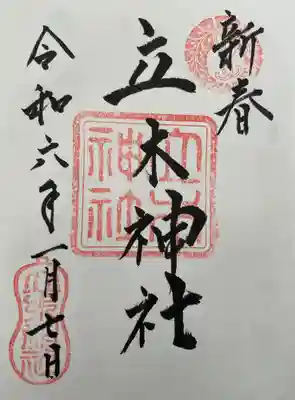 新春
立木神社
立木神社
令和六年一月七日